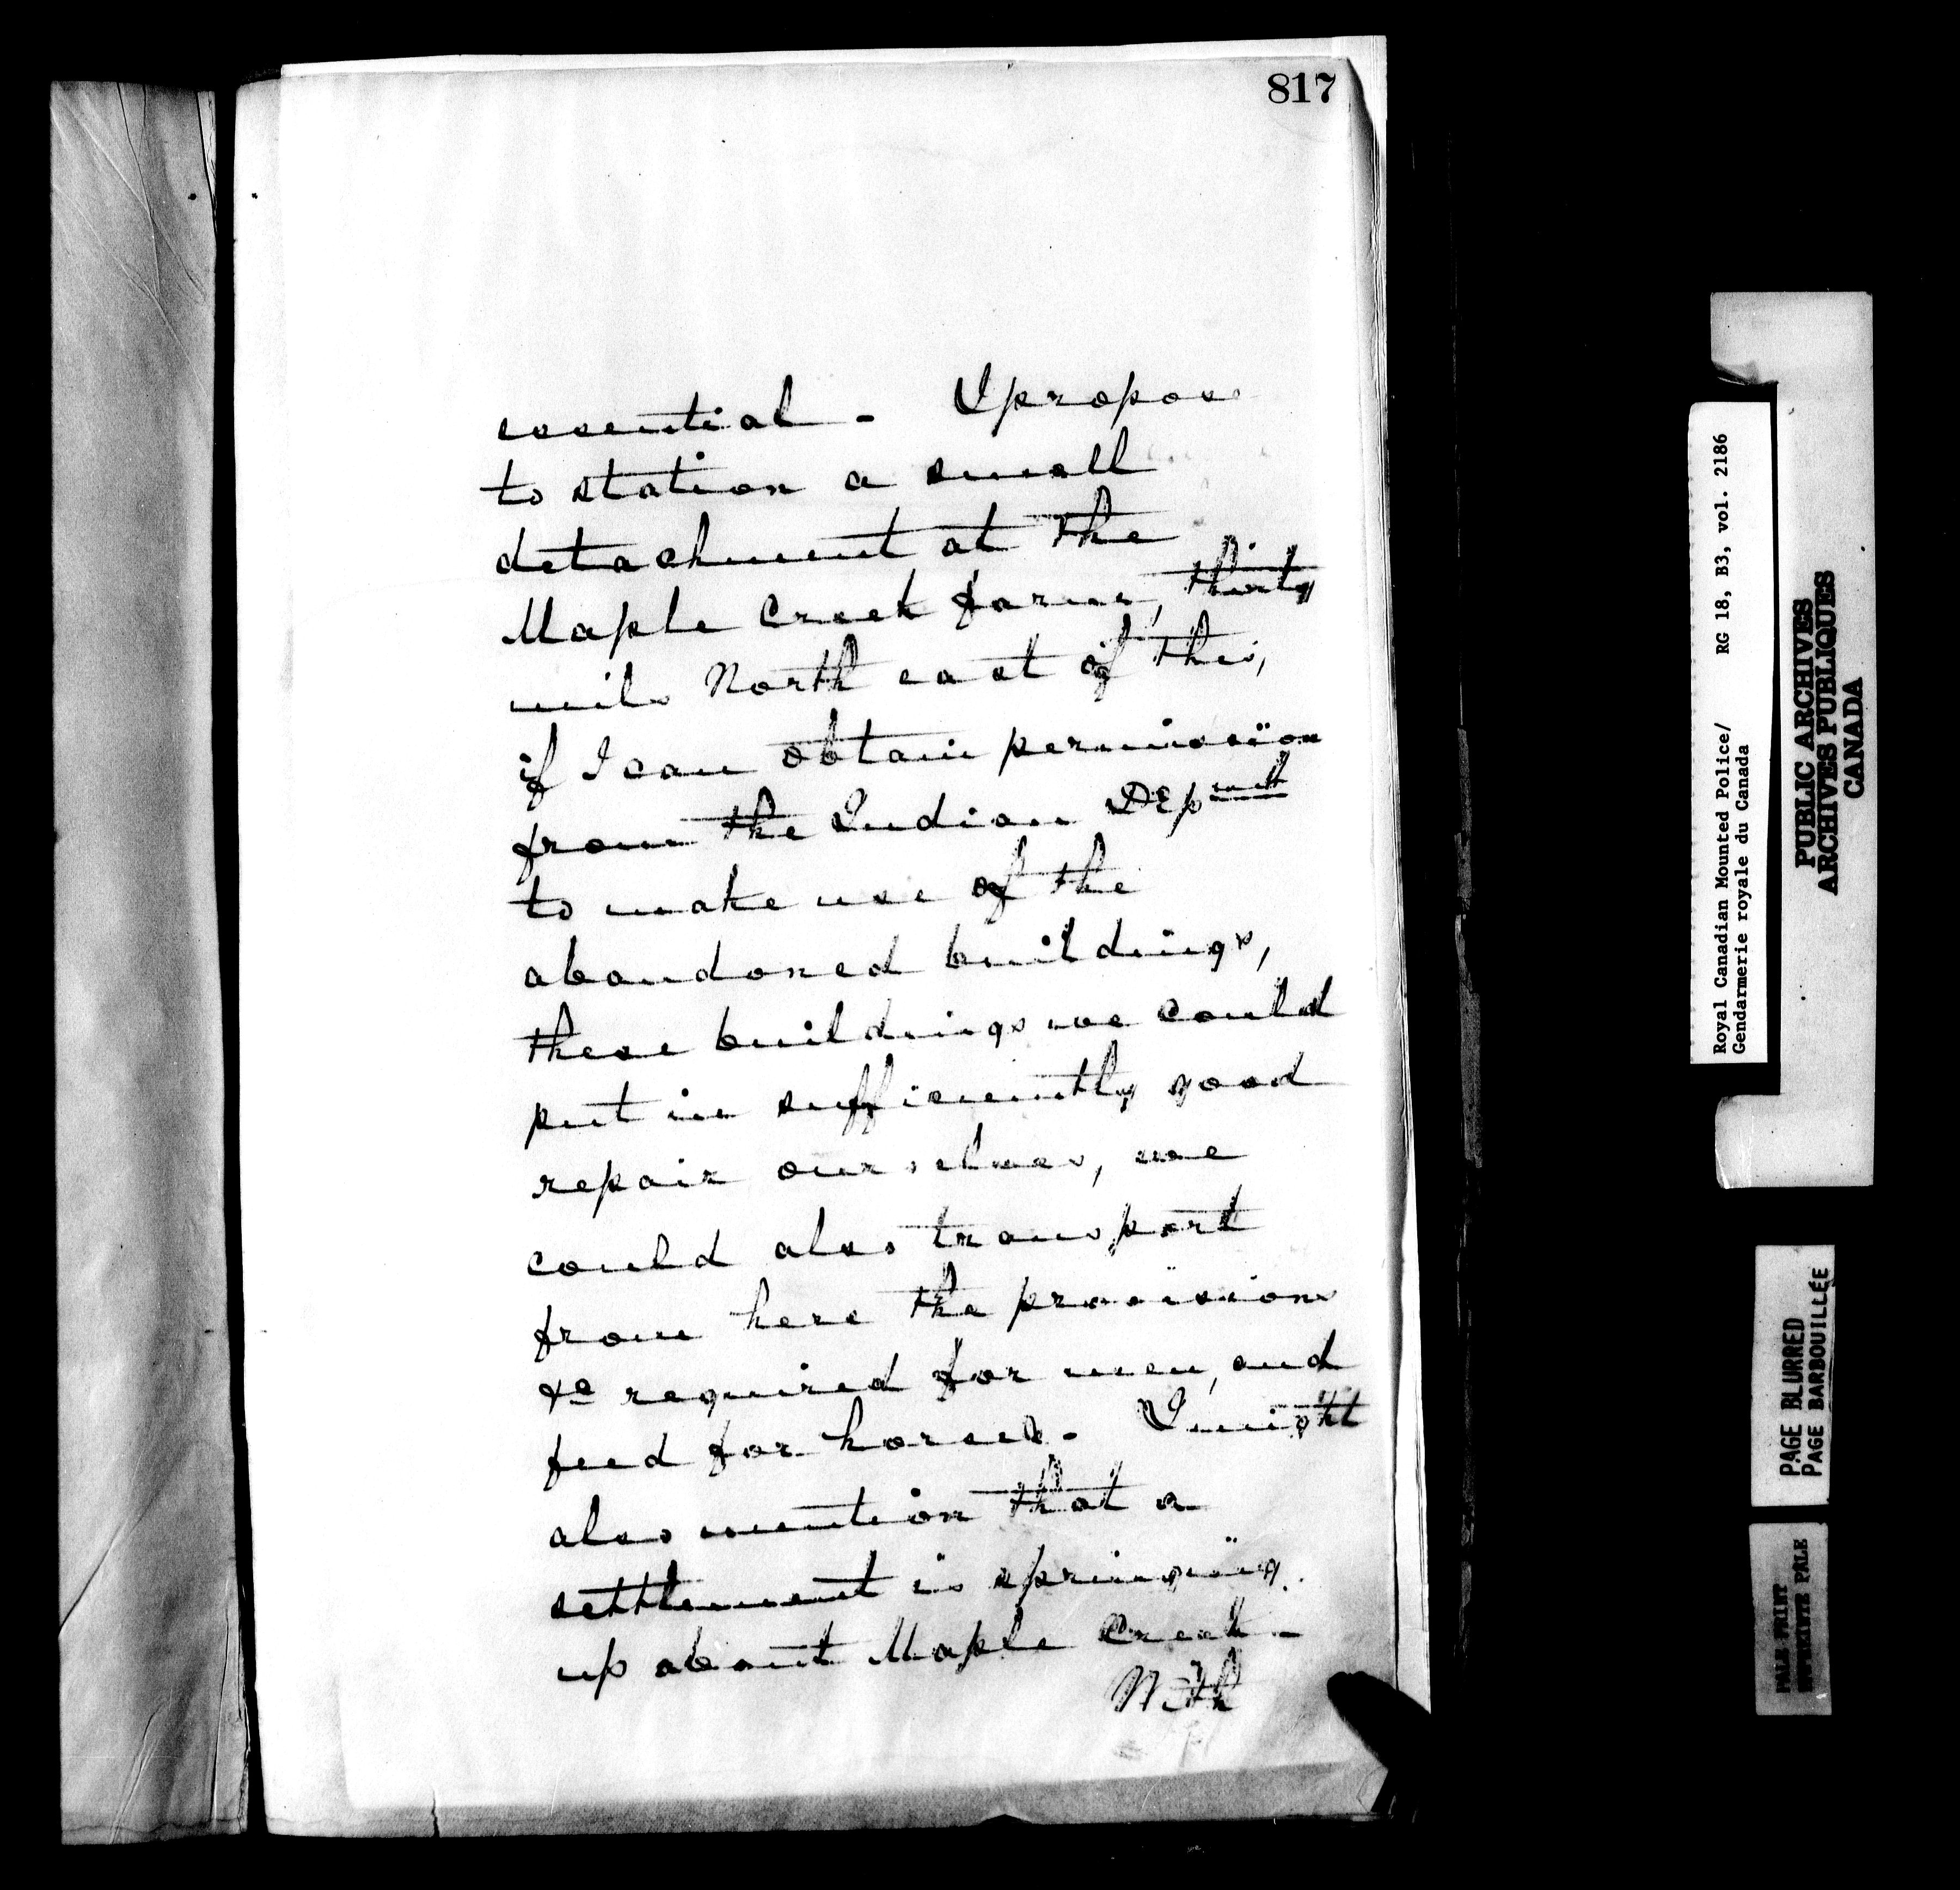 817
essential - I propose
to station a small
detachment at the
Maple Creek farm, thirty
miles North east of this,
if I can obtain permission
from the Indian Depmt
to make use of the
abandoned buildings,
these buildings we could
put in sufficiently good
repair ourselves, we
could also transport
from here the provisions
&c required for men, and
feed for horses - I might
also mention that a
settlement is springing
up about Maple Creek -
With
Royal Canadian Mounted Police/ RG 18, B3, vol. 2186
Gendarmerie royale du Canada
PUBLIC ARCHIVES
ARCHIVES PUBLIQUES
CANADA
PAGE BLURRED
PAGE BARBOUILLÉE
PALE PRINT
PALE